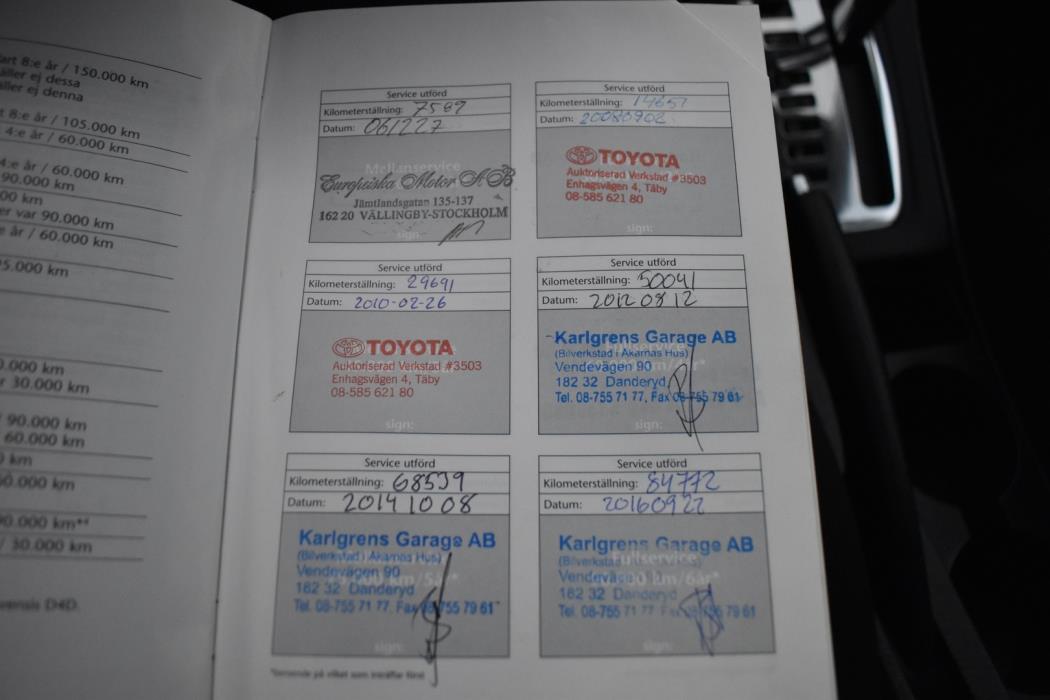 art 8:e år / 150.000 km
äller ej dessa
äller ej denna
t 8:e år / 105.000 km
4:e år / 60.000 km
4:e år / 60.000 km
90.000 km
00 km
er var 90.000 km
e år / 60.000 km
5.000 km
0.000 km
r 30.000 km
/ 90.000 km
60.000 km
) km
0.000 km
90.000 km**
/ 30.000 km
vensis D4D.
Service utförd
Kilometerställning: 7589
Datum: 061227
Mellanservice
Europeiska Motor AB
Jämtlandsgatan 135-137
162 20 VÄLLINGBY-STOCKHOLM
sign:
Service utförd
Kilometerställning: 14657
Datum: 20080902
TOYOTA
Auktoriserad Verkstad #3503
Enhagsvägen 4, Täby
08-585 621 80
sign:
Service utförd
Kilometerställning: 29691
Datum: 2010-02-26
TOYOTA
Auktoriserad Verkstad #3503
Enhagsvägen 4, Täby
08-585 621 80
sign:
Service utförd
Kilometerställning: 50041
Datum: 20120812
Karlgrens Garage AB
(Bilverkstad i Åkarnas Hus)
Vendevägen 90
182 32 Danderyd
Tel. 08-755 71 77, Fax 08-755 79 61
sign:
Service utförd
Kilometerställning: 68539
Datum: 20141008
Karlgrens Garage AB
(Bilverkstad i Åkarnas Hus)
Vendevägen 90
182 32 Danderyd
Tel. 08-755 71 77, Fax 08-755 79 61
sign:
Service utförd
Kilometerställning: 84772
Datum: 20160922
Karlgrens Garage AB
Fullservice
(Bilverkstad i Åkarnas Hus)
Vendevägen 90
km/6år*
182 32 Danderyd
Tel. 08-755 71 77 Fax 08-755 79 61
sign:
*beroende på vilket som inträffar först